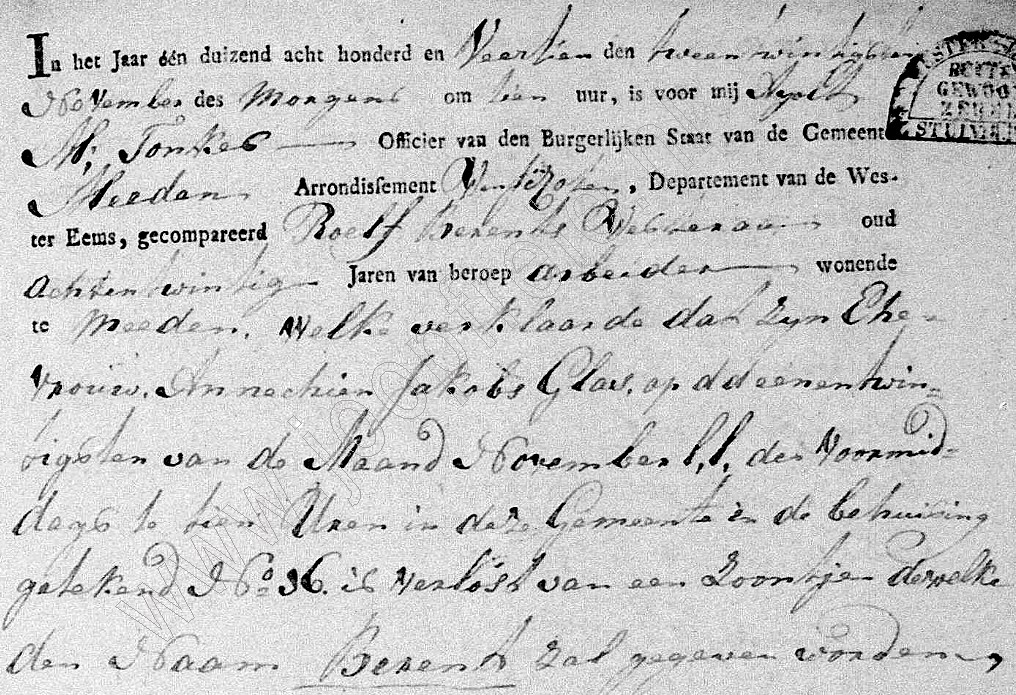 In het Jaar één duizend acht honderd en Veertien den tweentwintigsten
November des Morgens om tien uur, is voor mij
M: Tonkes Officier van den Burgerlijken Staat van de Gemeente
Meeden Arrondissement Winschoten, Departement van de Wes-
ter Eems, gecompareerd Roelf Berents oud
achtentwintig Jaren van beroep arbeider wonende
te Meeden. Welke verklaarde dat zyn Ehe-
vrouw. Annechien Jakobs Glas. op d d eenentwin-
tigsten van de Maand November l,l, des Voormid-
dags te tien Uren in deze Gemeente in de behuising
getekend No 36. is verlost van een Zoontje, dewelke
den Naam Berent zal gegeven worden,
GEWOO
STUIVER